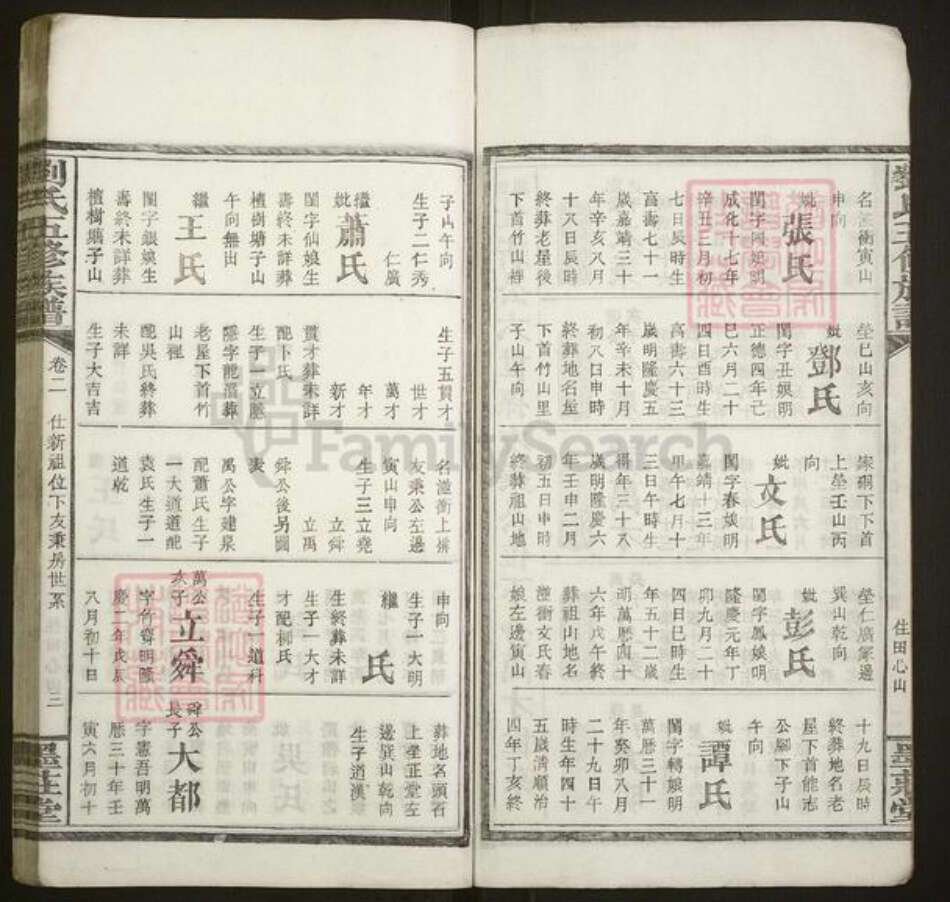 名滥衝寅山
申向
妣張氏
閨字閏娘明
成化十七年
辛丑三月初
七日辰時生
高壽七十一
歲嘉靖三十
年辛亥八月
十八日辰時
終葬老屋後
下首竹山裡
塋巳山亥向
妣鄧氏
閨字丑娘明
正德四年己
巳六月二十
四日酉時生
高壽六十三
歲明隆慶五
年辛未十月
初八日申時
終葬地名屋
下首竹山里
子山午向
家硐下下首
上塋壬山丙
向
妣文氏
閨字春娘明
嘉靖十三年
甲午七月十
三日午時生
得年三十八
歲明隆慶六
年壬申二月
初五日申時
終葬祖山地
塋仁廣篆邊
巽山乾向
妣彭氏
閨字鳳娘明
隆慶元年丁
卯九月二十
四日巳時生
年五十二歲
明萬歷四十
六年戊午終
葬祖山地名
滥衝文氏春
娘左邊寅山
十九日辰時
終葬地名老
屋下首能志
公腳下子山
午向
妣譚氏
閨字轉娘明
萬歷三十一
年癸卯八月
二十九日午
時生年四十
五歲清順治
四年丁亥終
住田心山
墨莊堂
子山午向
生子二仁秀
仁廣
繼妣蕭氏
閨字仙娘生
壽終未詳葬
檀樹塘子山
午向無出
繼王氏
閨字銀娘生
壽終未詳葬
檀樹塘子山
生子五貫才
世才
萬才
年才
新才
貫才葬未詳
配卜氏
生子一立賑
隱字龍湽葬
老屋下首竹
山裡
配吳氏終葬
未詳
生子大吉吉
名滥衝上排
友秉公左邊
寅山申向
生子三立堯
立舜
立禹
舜公後另圖
表
禹公字建泉
配蕭氏生子
一大道道配
袁氏生子一
道乾
申向
生子一大明
繼氏
生終葬未詳
生子一大才
才配柳氏
生子一道科
萬公次子立舜
字竹齋明隆
慶二年戊辰
八月初十日
葬地名頭石
上塋正堂左
邊巽山乾向
生子道漢
舜公長子大都
字憲吾明萬
歷三十年壬
寅六月初十
劉氏五修族譜
卷二
仕新祖位下友秉房世系
墨莊堂
FamilySearch